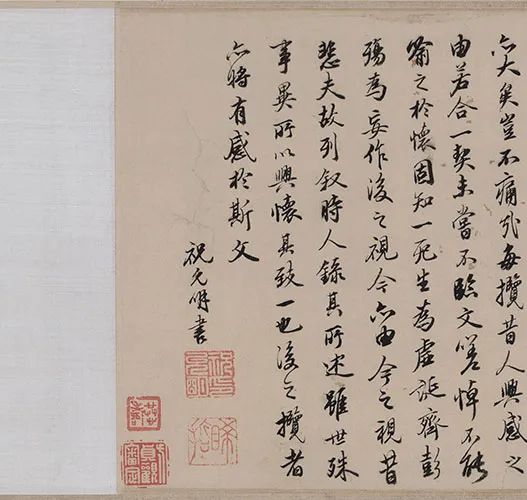 亦大矣豈不痛哉每攬昔人興感之
由若合一契未嘗不臨文嗟悼不能
喻之於懷固知一死生為虛誕齊彭
殤為妄作後之視今亦由今之視昔
悲夫故列叙時人錄其所述雖世殊
事異所以興懷其致一也後之攬者
亦將有感於斯文
祝允明書
祝允明印